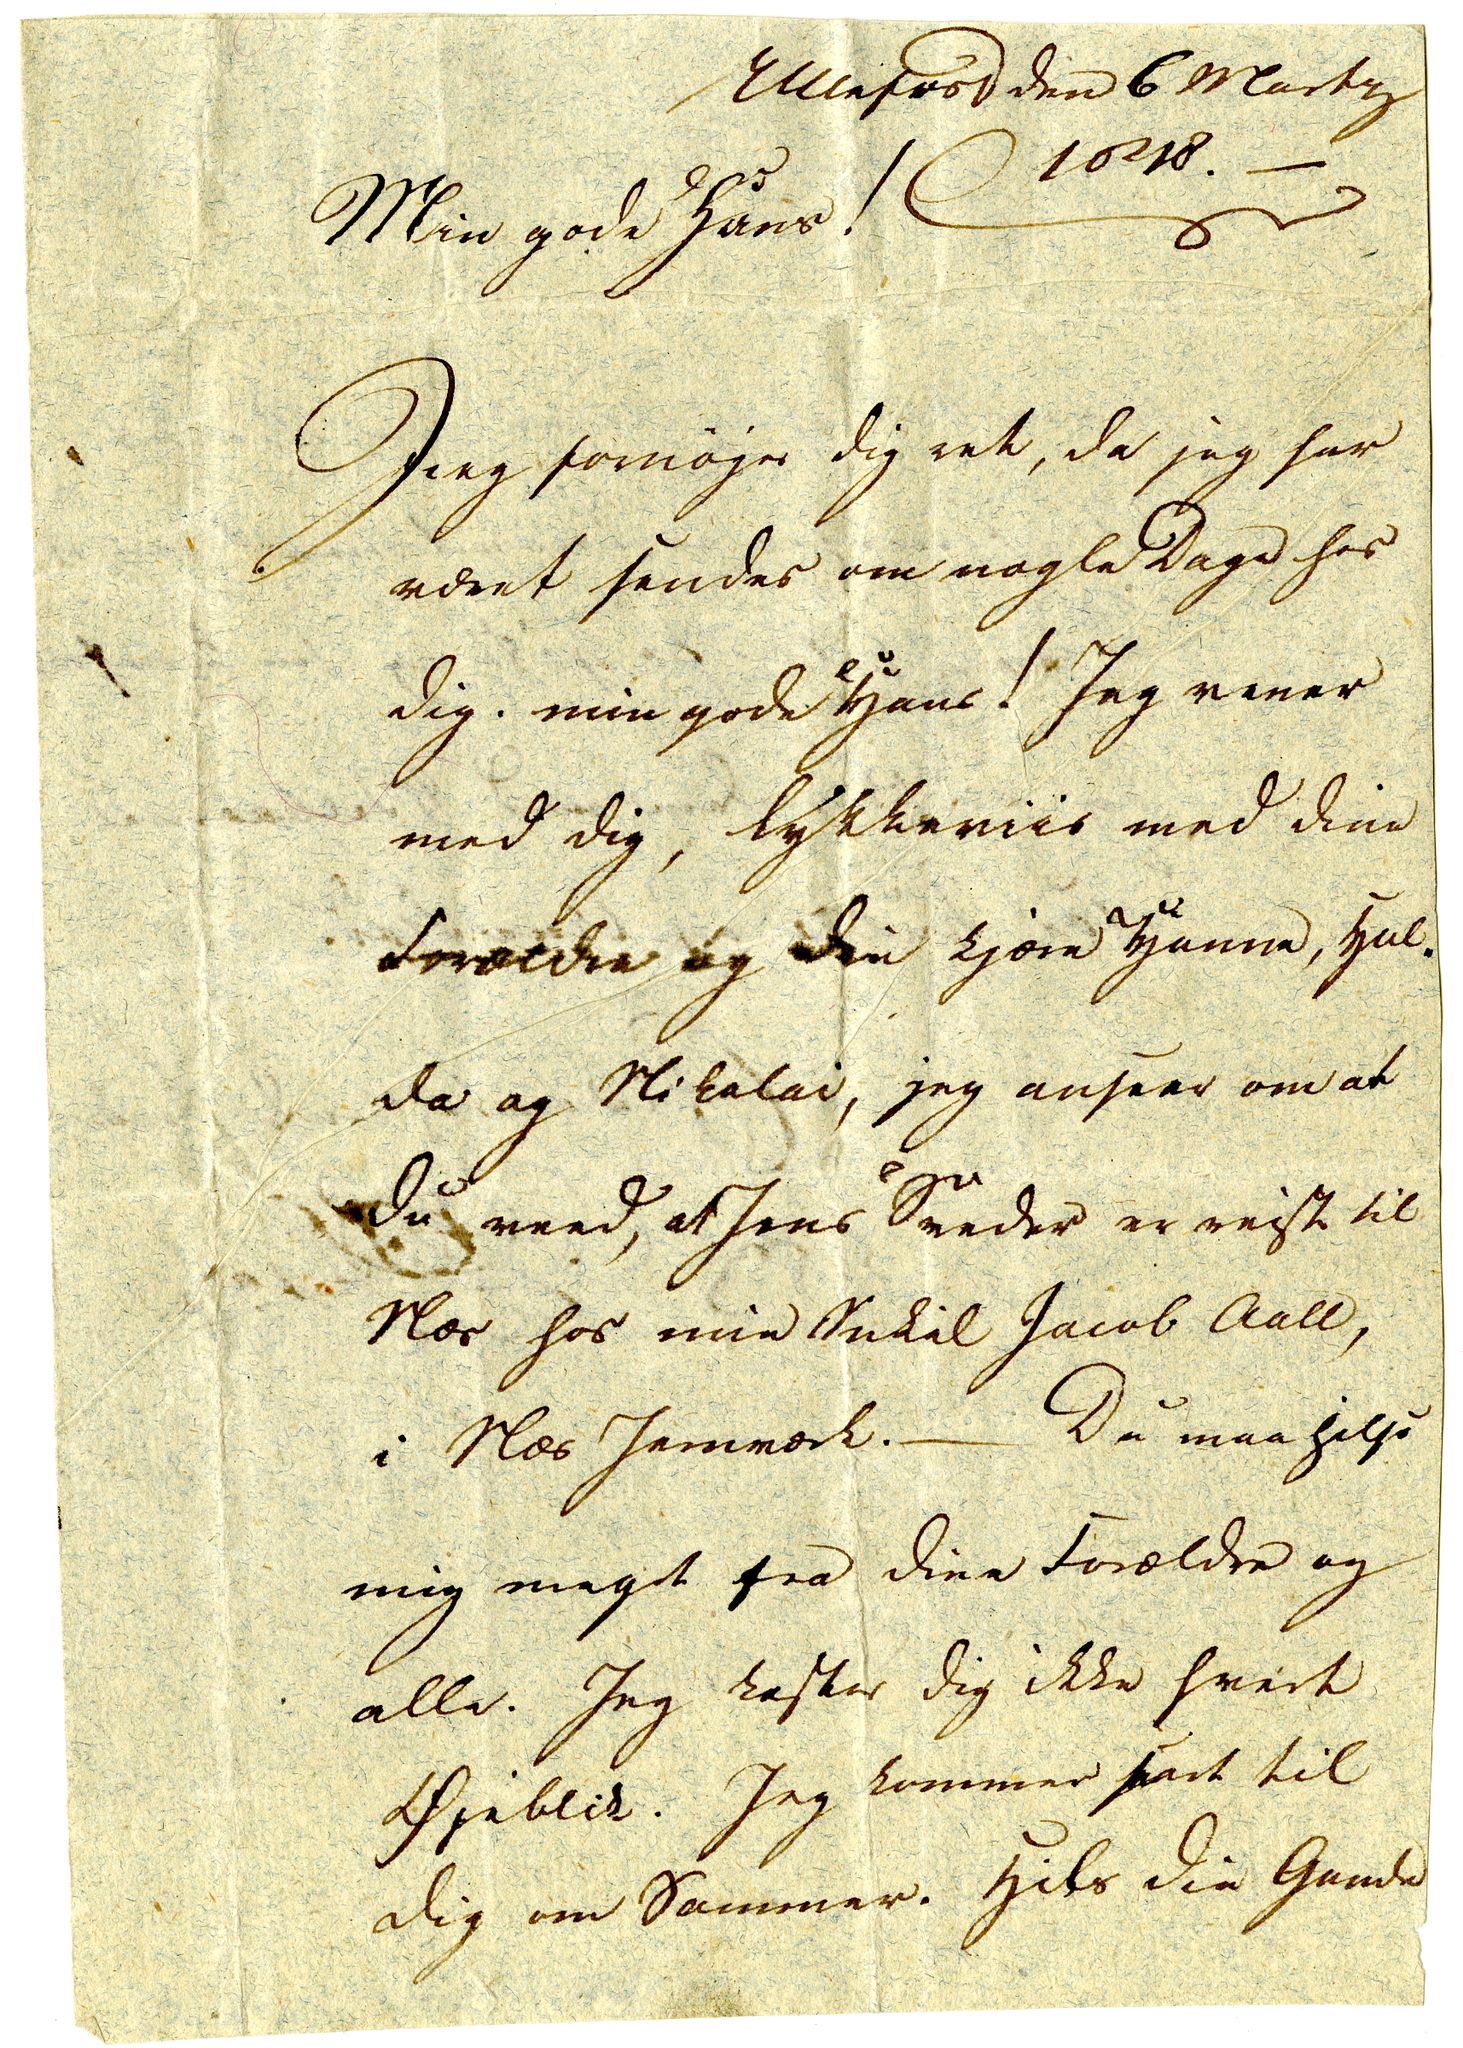 Ullefos den 6 Marty
Min gode Hans!
Jeg fornøjer dig ret, da jeg har
været sendes om nogle Dage hos
dig. min gode Hans! Jeg vener
med dig, lykkeviis med dine
Forældre og din kjære Hanna, Hal-
da og Nikolai, jeg anseer om at
du veed, at Jens er reist til
Næs hos min Onkel Jacob Aall,
i Næs Jernværk. — Du maa hilse
mig meget fra dine Forældre og
alle. Jeg kaster dig ikke hvert
Øjeblik. Jeg kommer snart til
dig om Sommer. Hils din